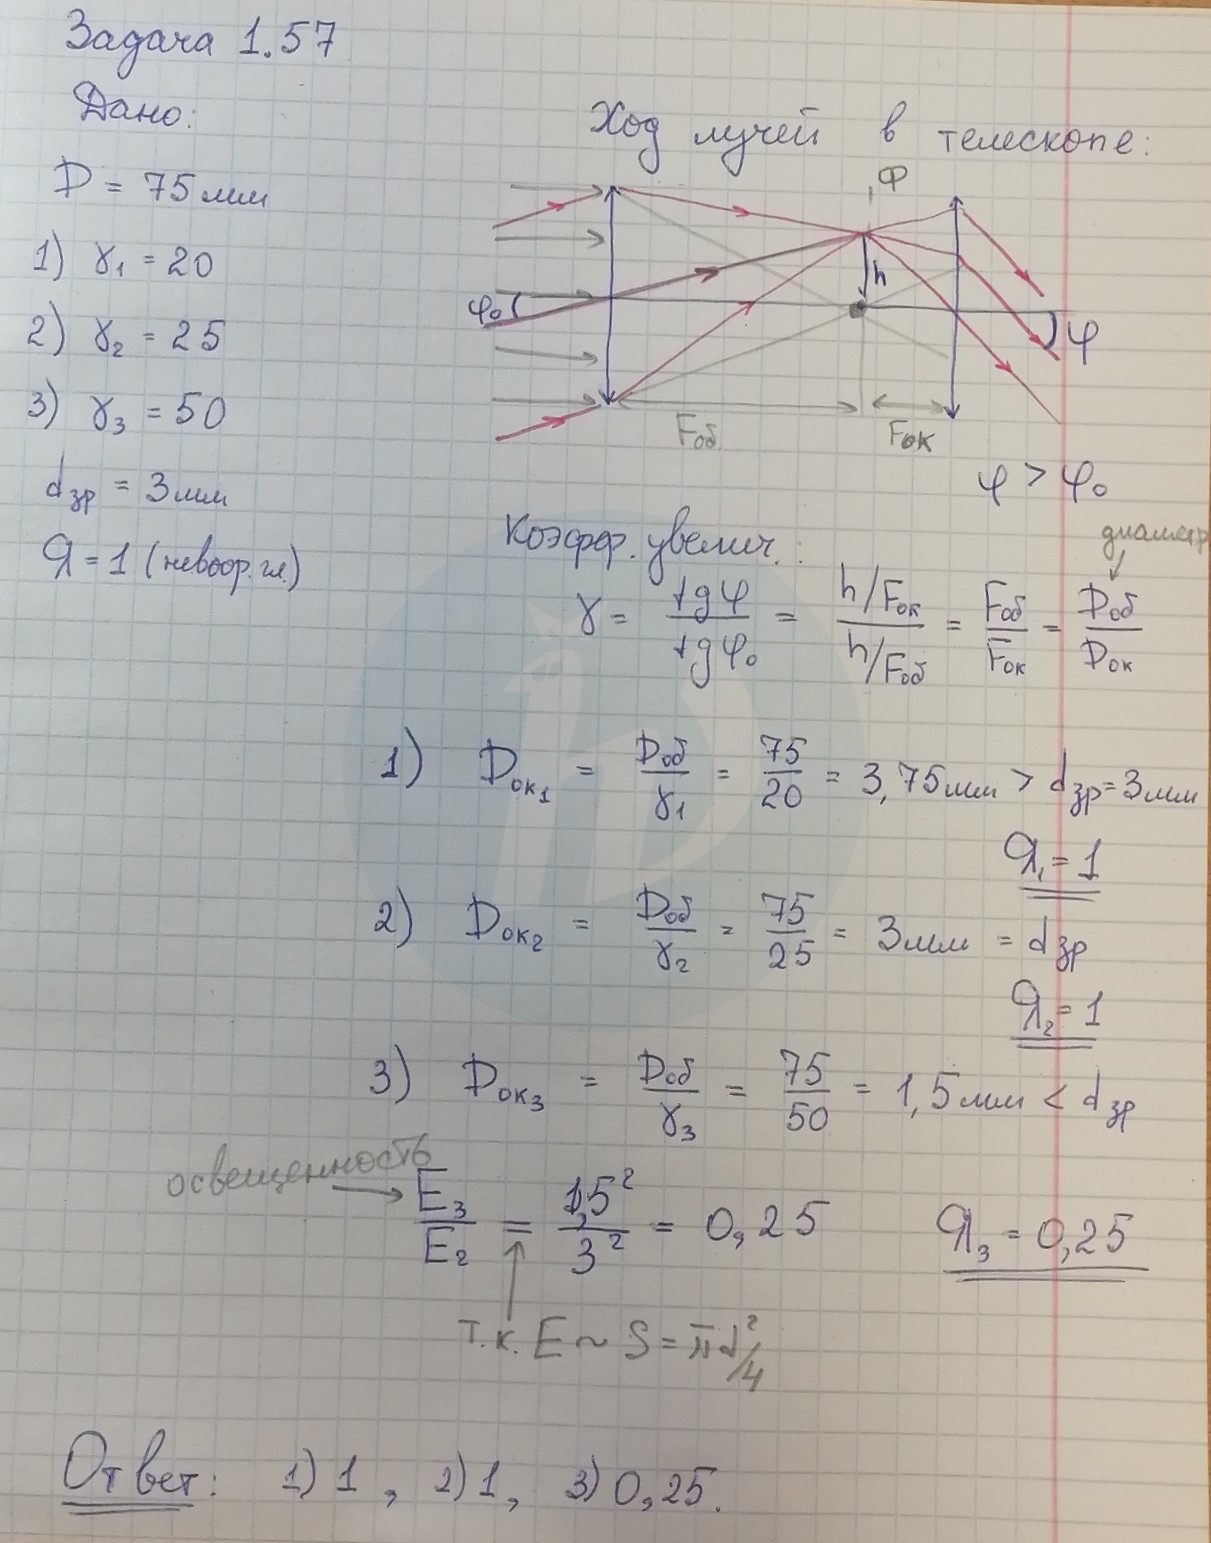 Задача 1.57
Дано:
D = 75 мм
1) γ₁ = 20
2) γ₂ = 25
3) γ₃ = 50
dзр = 3 мм
Я = 1 (невоор. гл.)
Ход лучей в телескопе:
Ф
h
φ₀
φ
Fоб.
Fок
φ > φ₀
диаметр
Коэфф. увелич.:
γ = tgφ / tgφ₀ = (h/Fок) / (h/Fоб) = Fоб / Fок = Dоб / Dок
1) Dок₁ = Dоб / γ₁ = 75 / 20 = 3,75 мм > dзр = 3 мм
Я₁ = 1
2) Dок₂ = Dоб / γ₂ = 75 / 25 = 3 мм = dзр
Я₂ = 1
3) Dок₃ = Dоб / γ₃ = 75 / 50 = 1,5 мм < dзр
освещенность
E₃ / E₂ = 1,5² / 3² = 0,25
Я₃ = 0,25
т.к. E ~ S = πd²/4
Ответ: 1) 1, 2) 1, 3) 0,25.